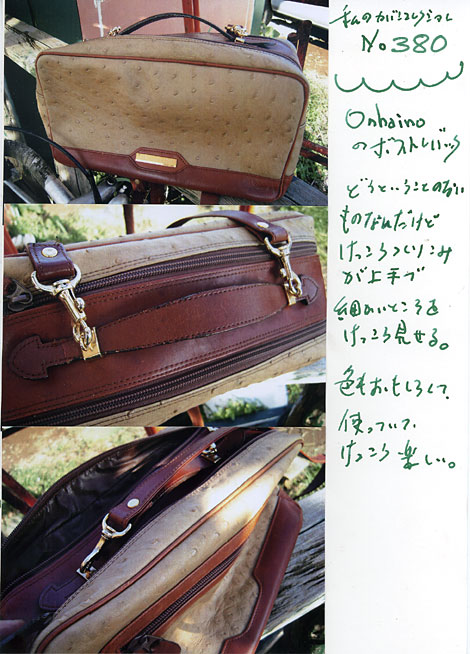 私のカバンコレクション
No 380
Onhaino
のボストンバック
どうということのない
ものなんだけど
けっこうつくりこみ
が上手で
細かいところも
けっこう見せる。
色もおもしろくて
使っていて
けっこう楽しい。